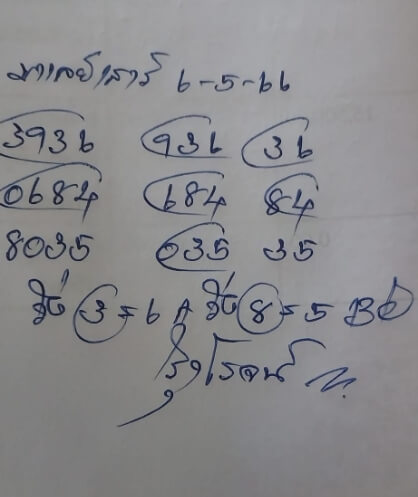 มาเลย์เสาร์ 6-5-66
3936 936 36
0684 684 84
8035 035 35
วิ่ง 3=6 A วิ่ง 8=5 B
รุ่งโรจน์